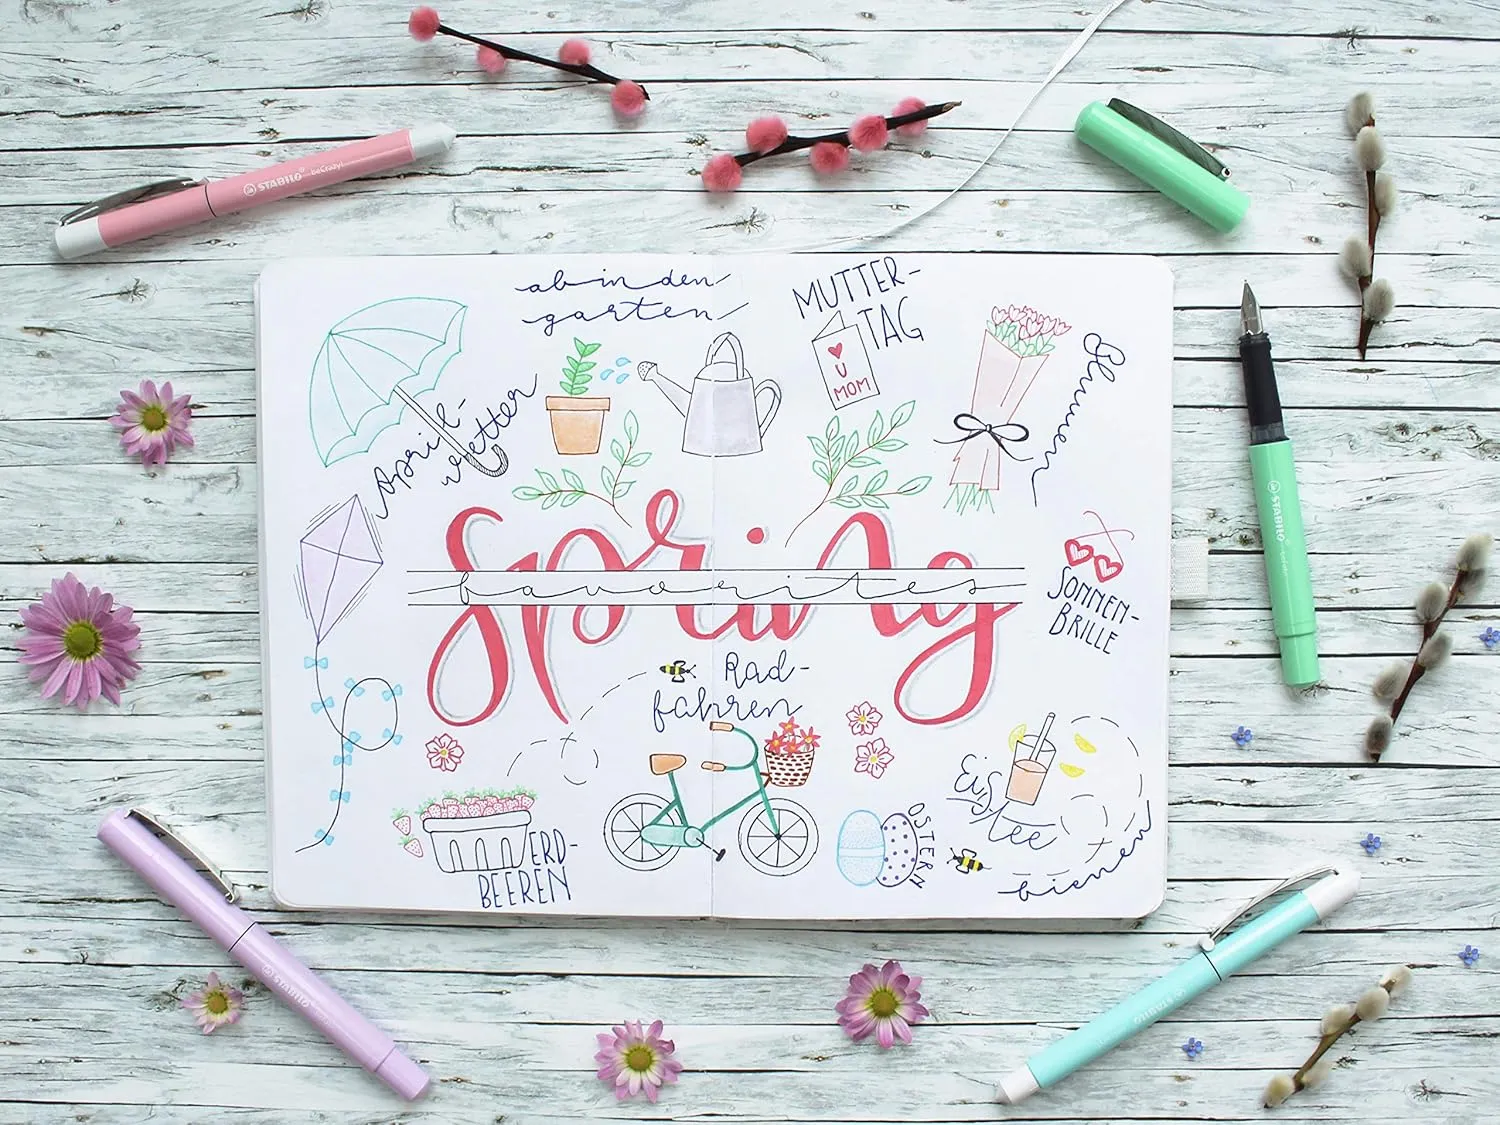 STABILO beCrazy!
ab in den
garten
MUTTER-
TAG
U
MOM
Blumen
April-
wetter
STABILO
spring
favorites
SONNEN-
BRILLE
Rad-
fahren
Eis
tee
ERD-
BEEREN
OSTERN
bienen
STABILO
STABILO